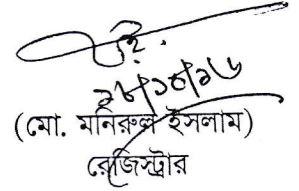 ২৮/১০/২৬
(মো. মনিরুল ইসলাম)
রেজিস্ট্রার